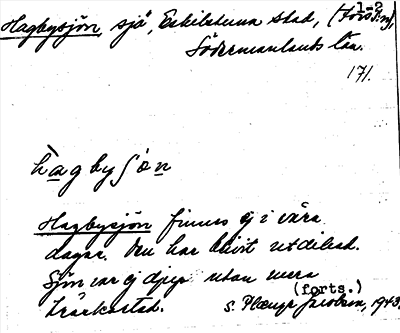 Hagbysjön, sjö, Eskilstuna stad, (Fors 1-2)
Södermanlands län.
171.
hagbysjön
Hagbysjön finnes ej i våra
dagar. Den har blivit utdikad.
Sjön var ej djup utan mera
träsk
(forts.)
S. Jacobson, 1943.